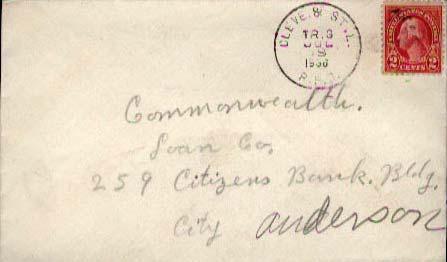 CLEVE. & ST. L.
TR. 3
JUL
1936
R.P.O.
UNITED STATES POSTAGE
2 CENTS 2
Commonwealth.
Loan Co,
259 Citizens Bank. Bldg.
City Anderson